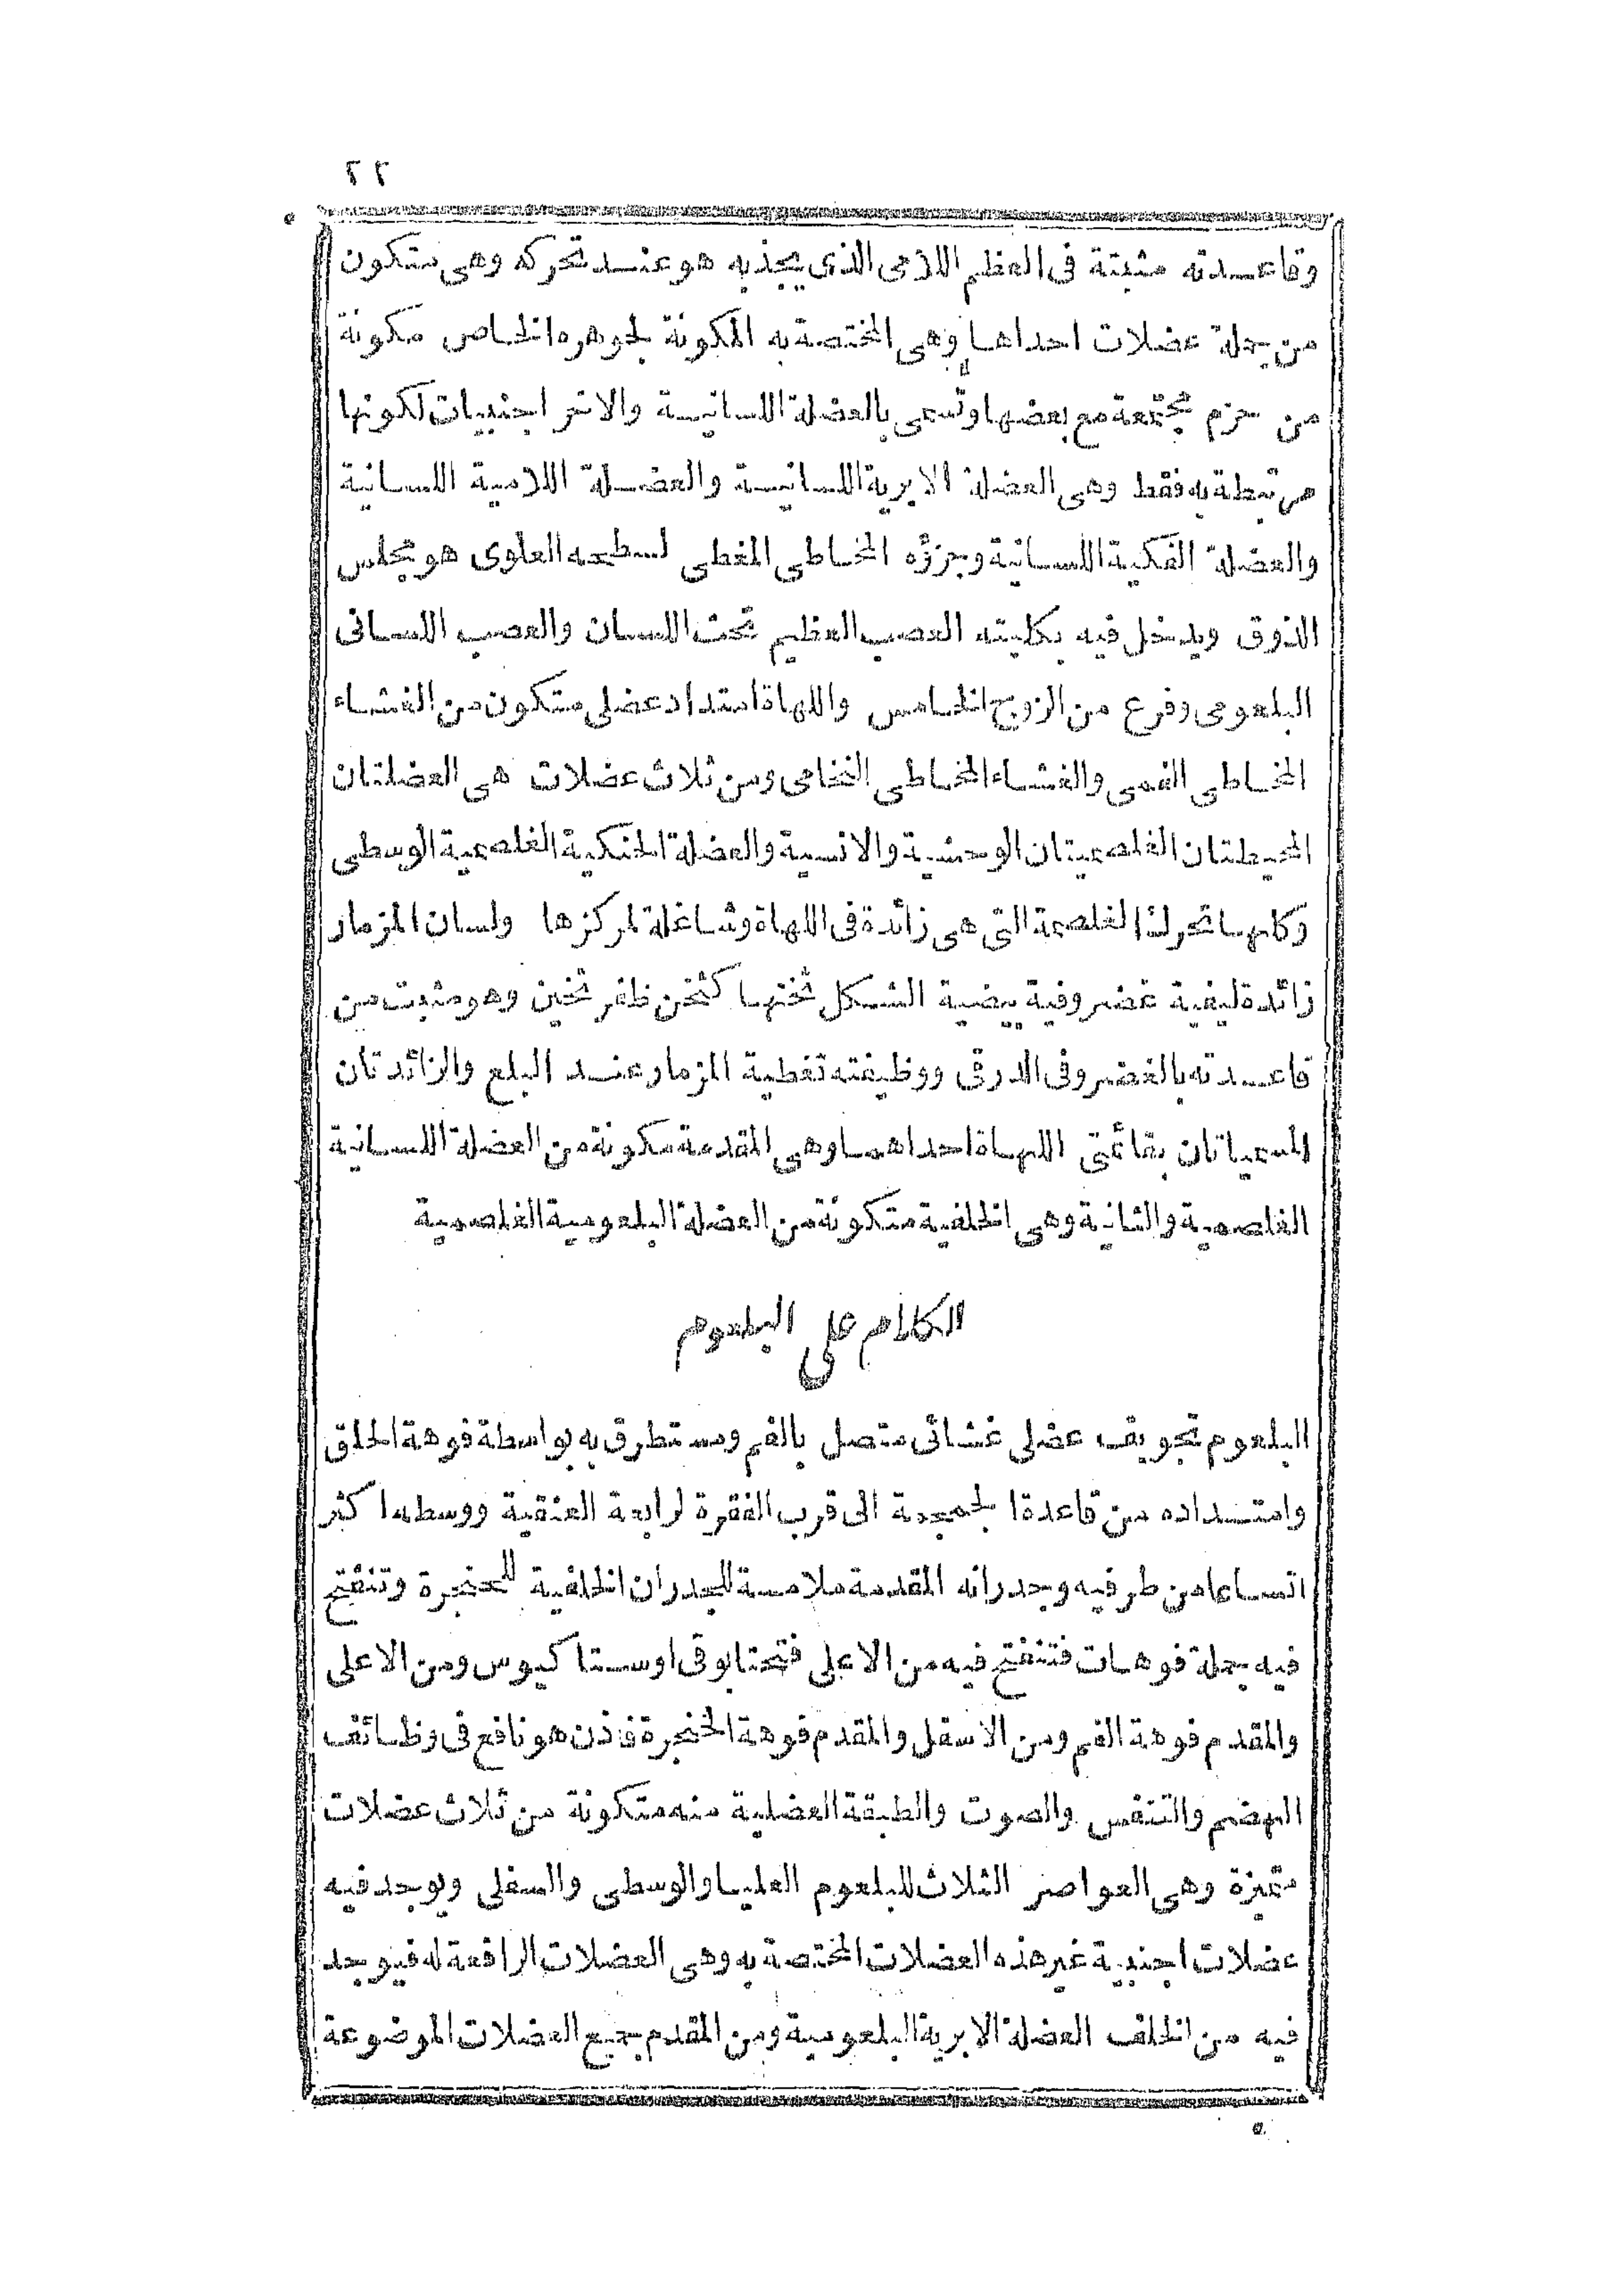 ٢٢
وقاعدته مثبتة فى العظم اللامى الذى يجذبه هو عند تحركه وهى متكون
من جملة عضلات احداها وهى المختصة به المكونة لجوهره الخاص مكونة
من حزم مجتمعة مع بعضها وتسمى بالعضلة اللسانية والاخر اجنبيات لكونها
مرتبطة به فقط وهى العضلة الابرية اللسانية والعضلة اللامية اللسانية
والعضلة الفكية اللسانية وجزؤه المخاطى المغطى لسطحه العلوى هو مجلس
الذوق ويدخل فيه بكليته العصب العظيم تحت اللسان والعصب اللسانى
البلعومى وفرع من الزوج الخامس واللهاة امتداد عضلى متكون من الغشاء
المخاطى الفمى والغشاء المخاطى النخامى ومن ثلاث عضلات هى العضلتان
المحيطتان الغلصميتان الوحشية والانسية والعضلة الحنكية الغلصمية الوسطى
وكلها تحرك الغلصمة التى هى زائدة فى اللهاة وشاغلة لمركزها ولسان المزمار
زائدة ليفية غضروفية بيضية الشكل ثخنها كثخن ظفر ثخين وهو مثبت من
قاعدته بالغضروف الدرقى ووظيفته تغطية المزمار عند البلع والزائدتان
المسميتان بقائمتى اللهاة احداهما وهى المقدمة مكونة من العضلة اللسانية
الغلصمية والثانية وهى الخلفية متكونة من العضلة البلعومية الغلصمية
الكلام على البلعوم
البلعوم تجويف عضلى غشائى متصل بالفم ومستطرق به بواسطة فوهة الحلق
وامتداده من قاعدة الجمجمة الى قرب الفقرة لرابعة العنقية ووسطه اكثر
اتساعا من طرفيه وجدرانه المقدمة ملامسة للجدران الخلفية للحنجرة وتنفتح
فيه جملة فوهات فتنفتح فيه من الاعلى فتحتا بوقى اوستا كيوس ومن الاعلى
والمقدم فوهة الفم ومن الاسفل والمقدم فوهة الحنجرة فاذن هو نافع فى وظائف
الهضم والتنفس والصوت والطبقة العضلية منه متكونة من ثلاث عضلات
متميزة وهى العواصر الثلاث للبلعوم العليا والوسطى والسفلى ويوجد فيه
عضلات اجنبية غير هذه العضلات المختصة به وهى العضلات الرافعة له فيوجد
فيه من الخلف العضلة الابرية البلعومية ومن المقدم جميع العضلات الموضوعة